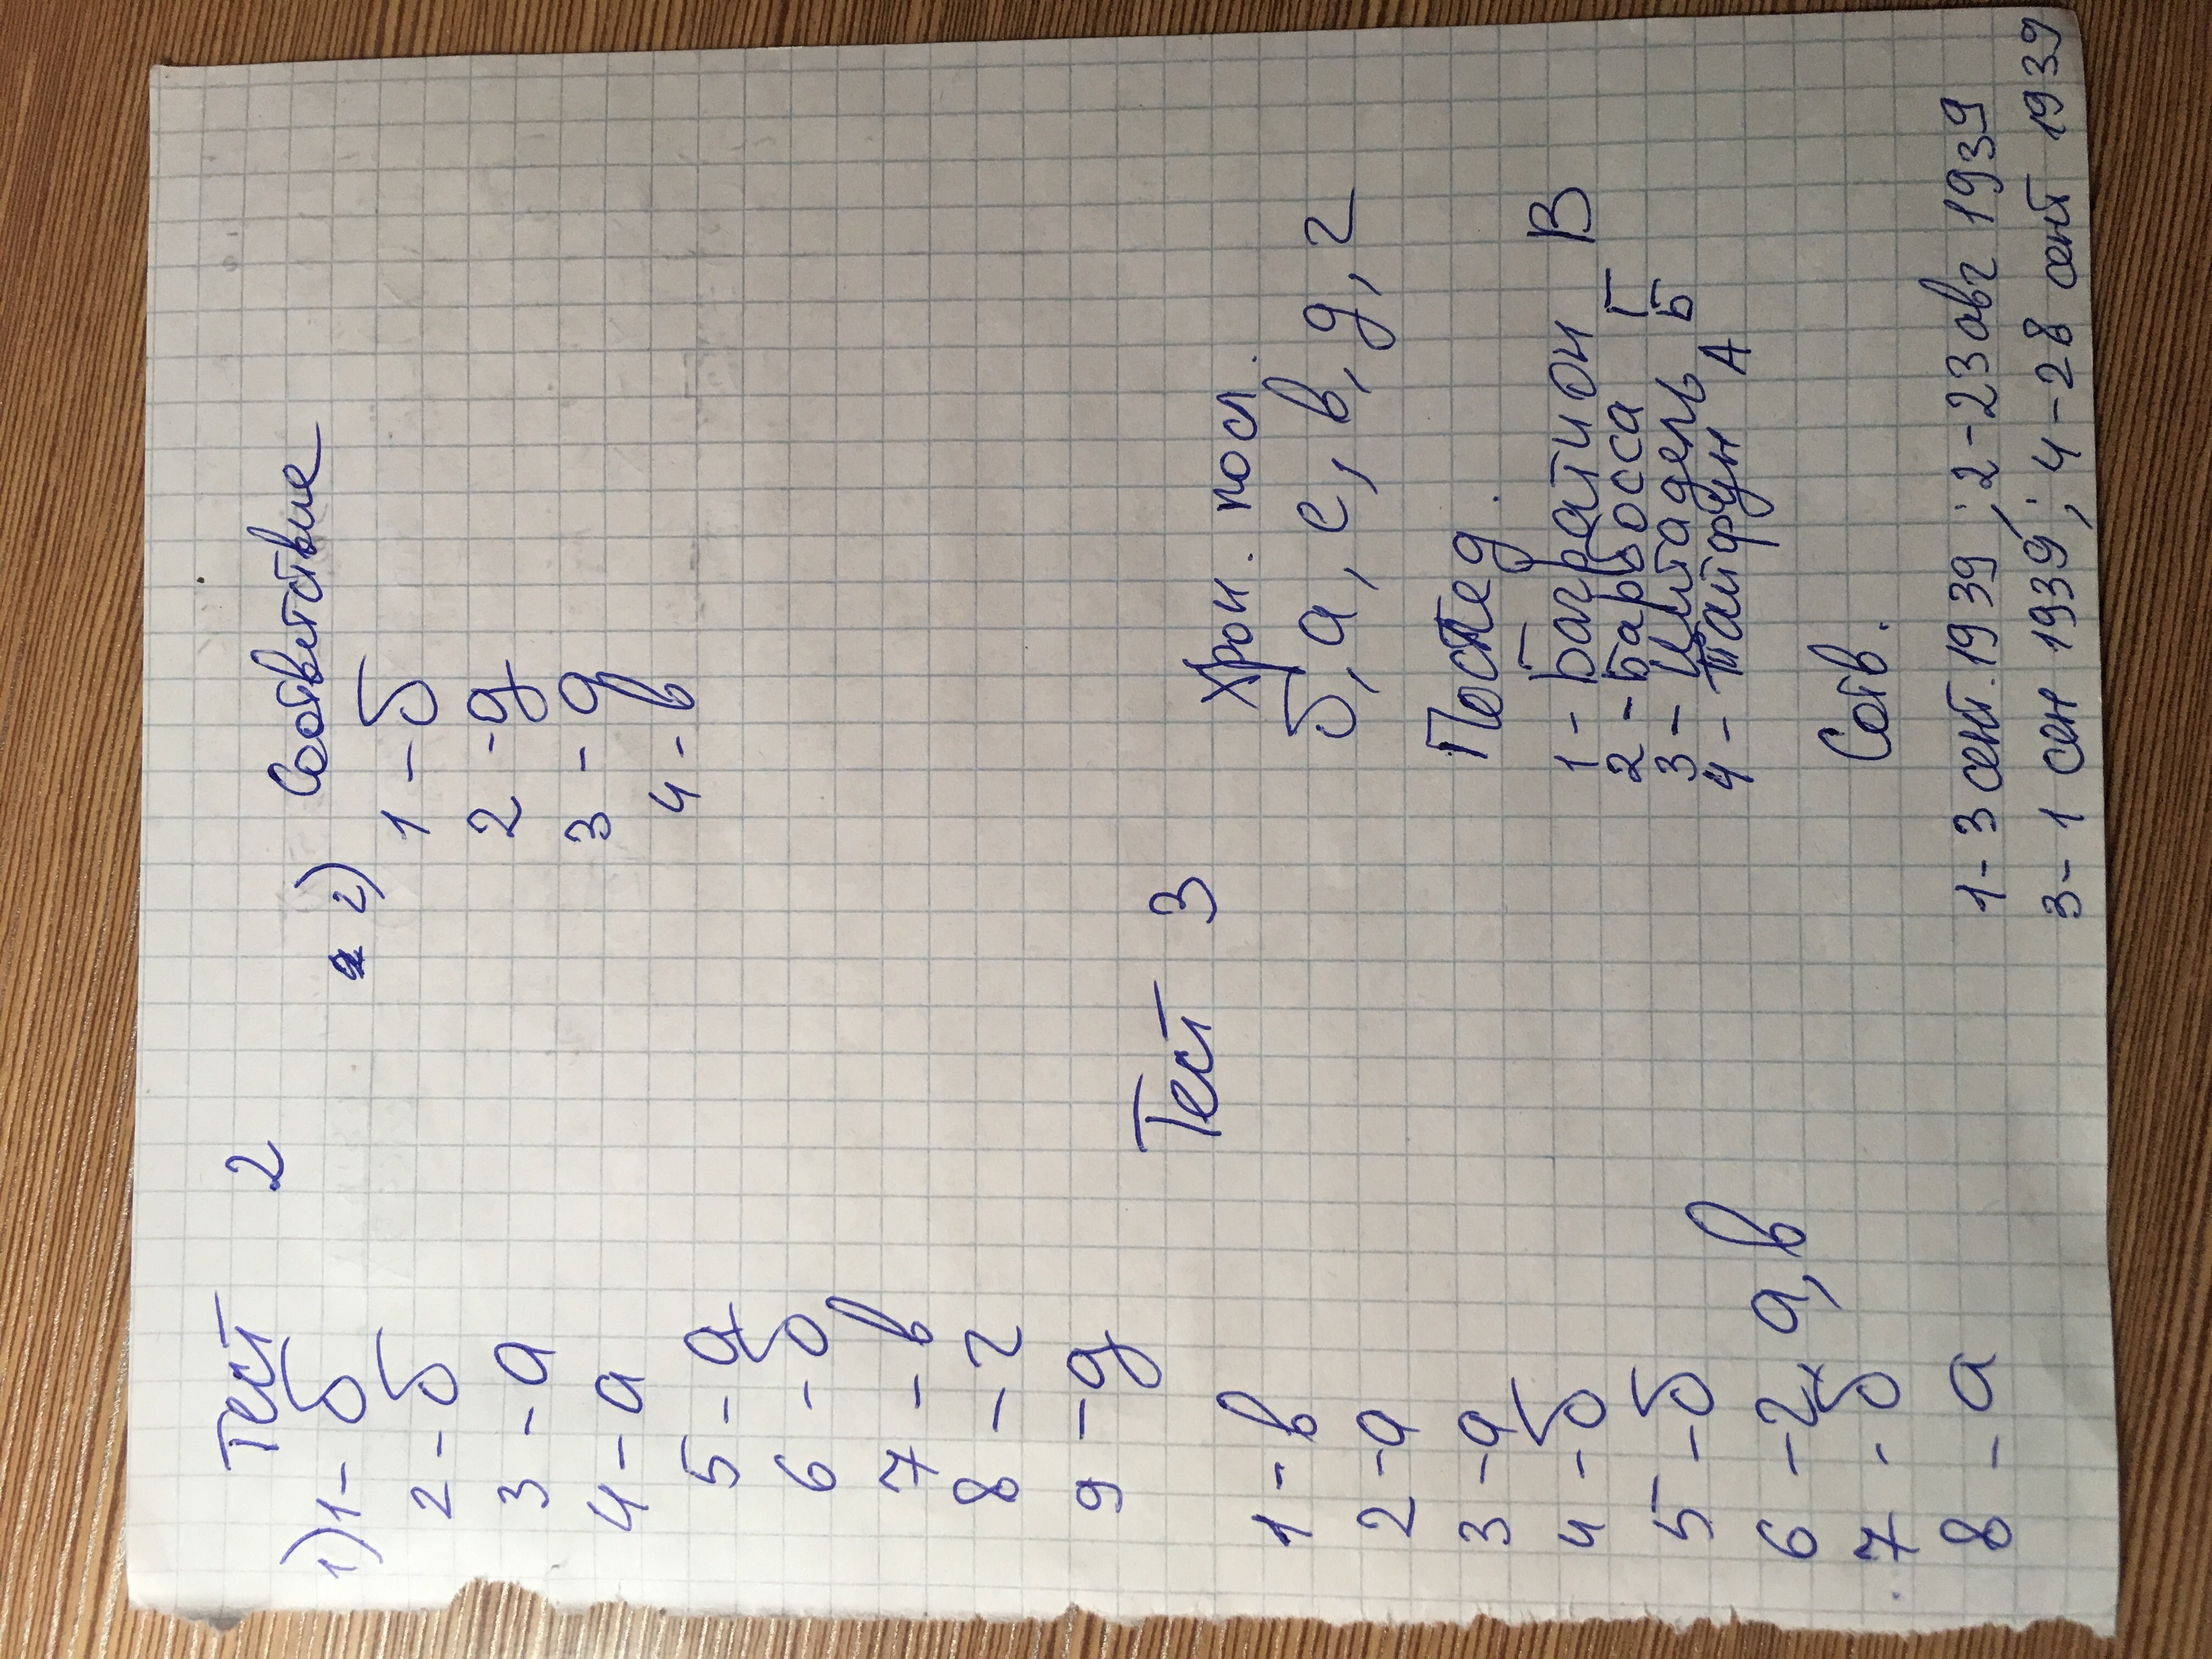 Тест 2
1) 1 - б
2 - б
3 - а
4 - а
5 - а
6 - б
7 - в
8 - г
9 - д
2) Соответствие
1 - б
2 - д
3 - д
4 - в
Тест 3
1 - в
2 - а
3 - а
4 - б
5 - б
6 - г, а, в
7 - б
8 - а
Хрон. посл.
б, а, е, в, д, г
Послед.
1 - Багратион В
2 - Барбосса Г
3 - Цитадель Б
4 - Тайфун А
Сотв.
1 - 3 сент. 1939; 2 - 23 авг 1939
3 - 1 сен 1939; 4 - 28 сент 1939